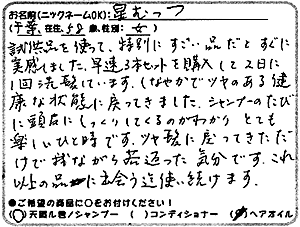 お名前(ニックネームOK): 星むっつ
(千葉 在住、58 歳、性別: 女)
試供品を使って、特別にすごい品だとすぐに
実感しました。早速3本セットを購入して2日に
1回洗髪しています。しなやかでツヤのある健
康な状態に戻ってきました。シャンプーのたび
に頭皮にしっくりしてくるのがわかり とても
楽しいひと時です。ツヤ髪に戻ってきただ
けで残ながら若返った気分です。これ
以上の品に出会う迄使い続けます。
●ご希望の商品に○をお付けください!
( )天園ル君シャンプー ( )コンディショナー ( )ヘアオイル